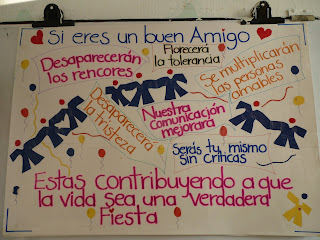 Si eres un buen Amigo
Desaparecerán
los rencores
Florecerá
la tolerancia
Se multiplicarán
las personas
amables
Desaparecera
la tristeza
Nuestra
comunicación
mejorará
Serás tu mismo
sin críticas
Estas contribuyendo a que
la vida sea una "verdadera"
Fiesta